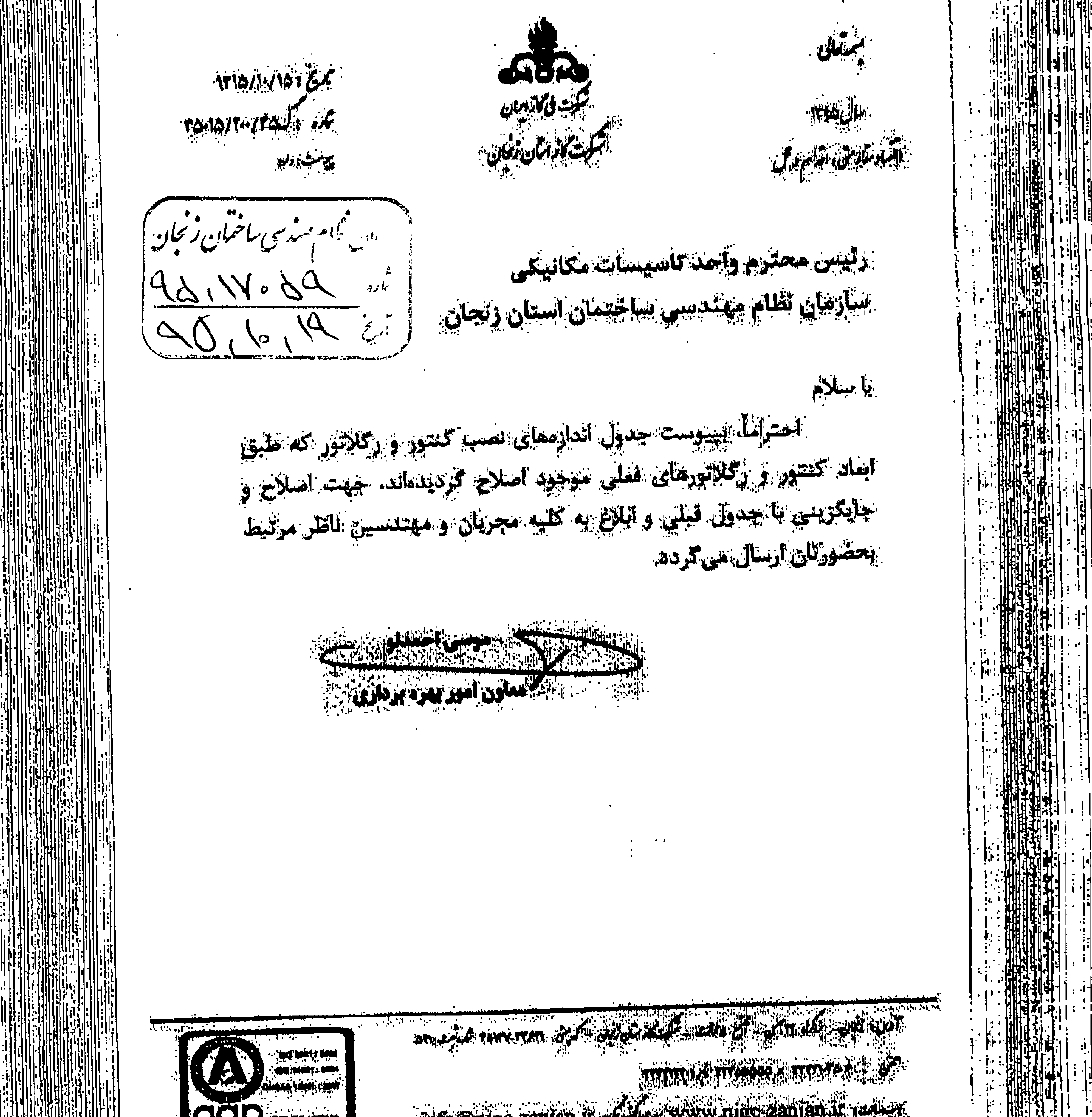 بسمه تعالی
سال ۱۳۹۵
اقتصاد مقاومتی، اقدام و عمل
شرکت ملی گاز ایران
شرکت گاز استان زنجان
تاریخ: ۱۳۹۵/۱۰/۱۵
شماره
پیوست: دارد
نظام مهندسی ساختمان زنجان
شماره ۹۵،۱۷۰۵۹
تاریخ ۹۵،۱۰،۱۹
رئیس محترم واحد تاسیسات مکانیکی
سازمان نظام مهندسی ساختمان استان زنجان
با سلام
احتراماً، بپیوست جدول اندازه‌های نصب کنتور و رگلاتور که طبق
ابعاد کنتور و رگلاتورهای فعلی موجود اصلاح گردیده‌اند، جهت اصلاح و
جایگزینی با جدول قبلی و ابلاغ به کلیه مجریان و مهندسین ناظر مرتبط
بحضورتان ارسال می‌گردد.
موسی احمدلو
معاون امور بهره برداری